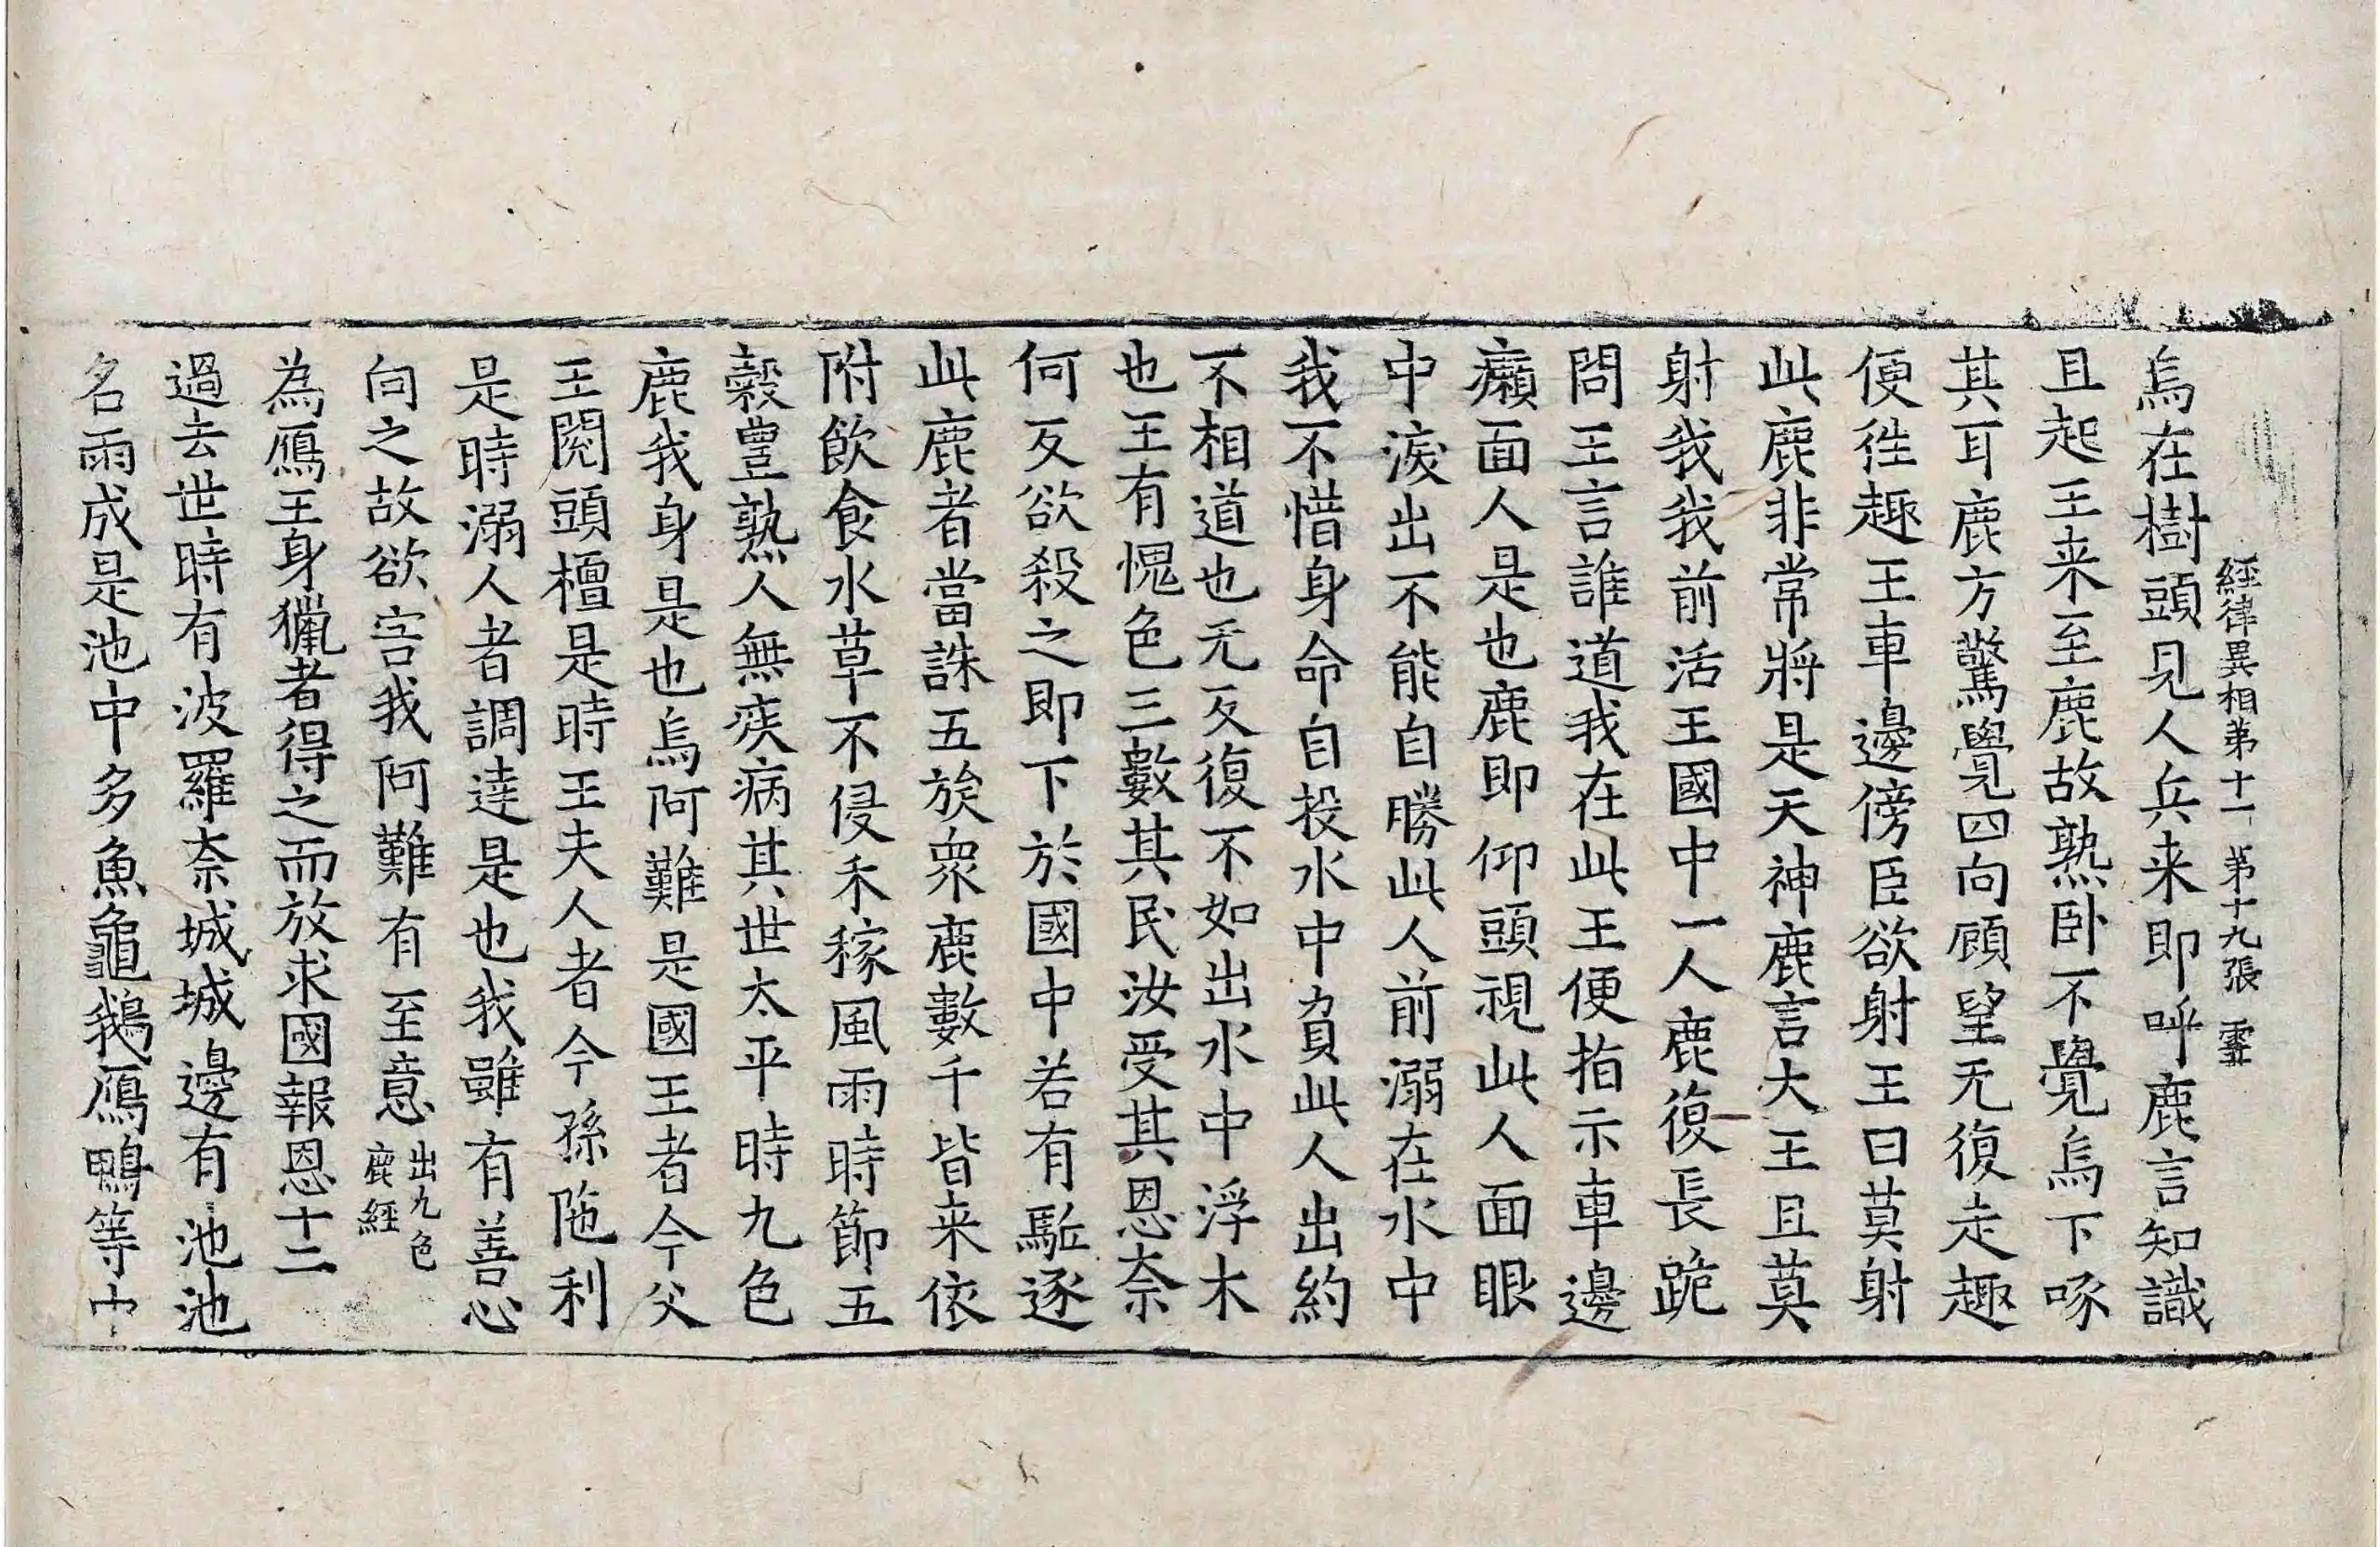 經律異相弟十一 第十九張 霏
烏在樹頭見人兵来即呼鹿言知識
且起王来至鹿故熟卧不覺烏下啄
其耳鹿方驚覺四向顧望无復走趣
便徃趣王車邊傍臣欲射王曰莫射
此鹿非常將是天神鹿言大王且莫
射我我前活王國中一人鹿復長跪
問王言誰道我在此王便指示車邊
癩面人是也鹿即仰頭視此人面眼
中淚出不能自勝此人前溺在水中
我不惜身命自投水中負此人出約
不相道也无反復不如出水中浮木
也王有愧色三數其民汝受其恩奈
何反欲殺之即下於國中若有駈逐
此鹿者當誅五族衆鹿數千皆来依
附飲食水草不侵禾稼風雨時節五
穀豊熟人無疾病其世太平時九色
鹿我身是也烏阿難是國王者今父
王閱頭檀是時王夫人者今孫陁利
是時溺人者調達是也我雖有善心
向之故欲害我阿難有至意 出九色
鹿經
為鴈王身獵者得之而放求國報恩十二
過去世時有波羅奈城城邊有池池
名雨成是池中多魚龜鵝鴈鴨等中